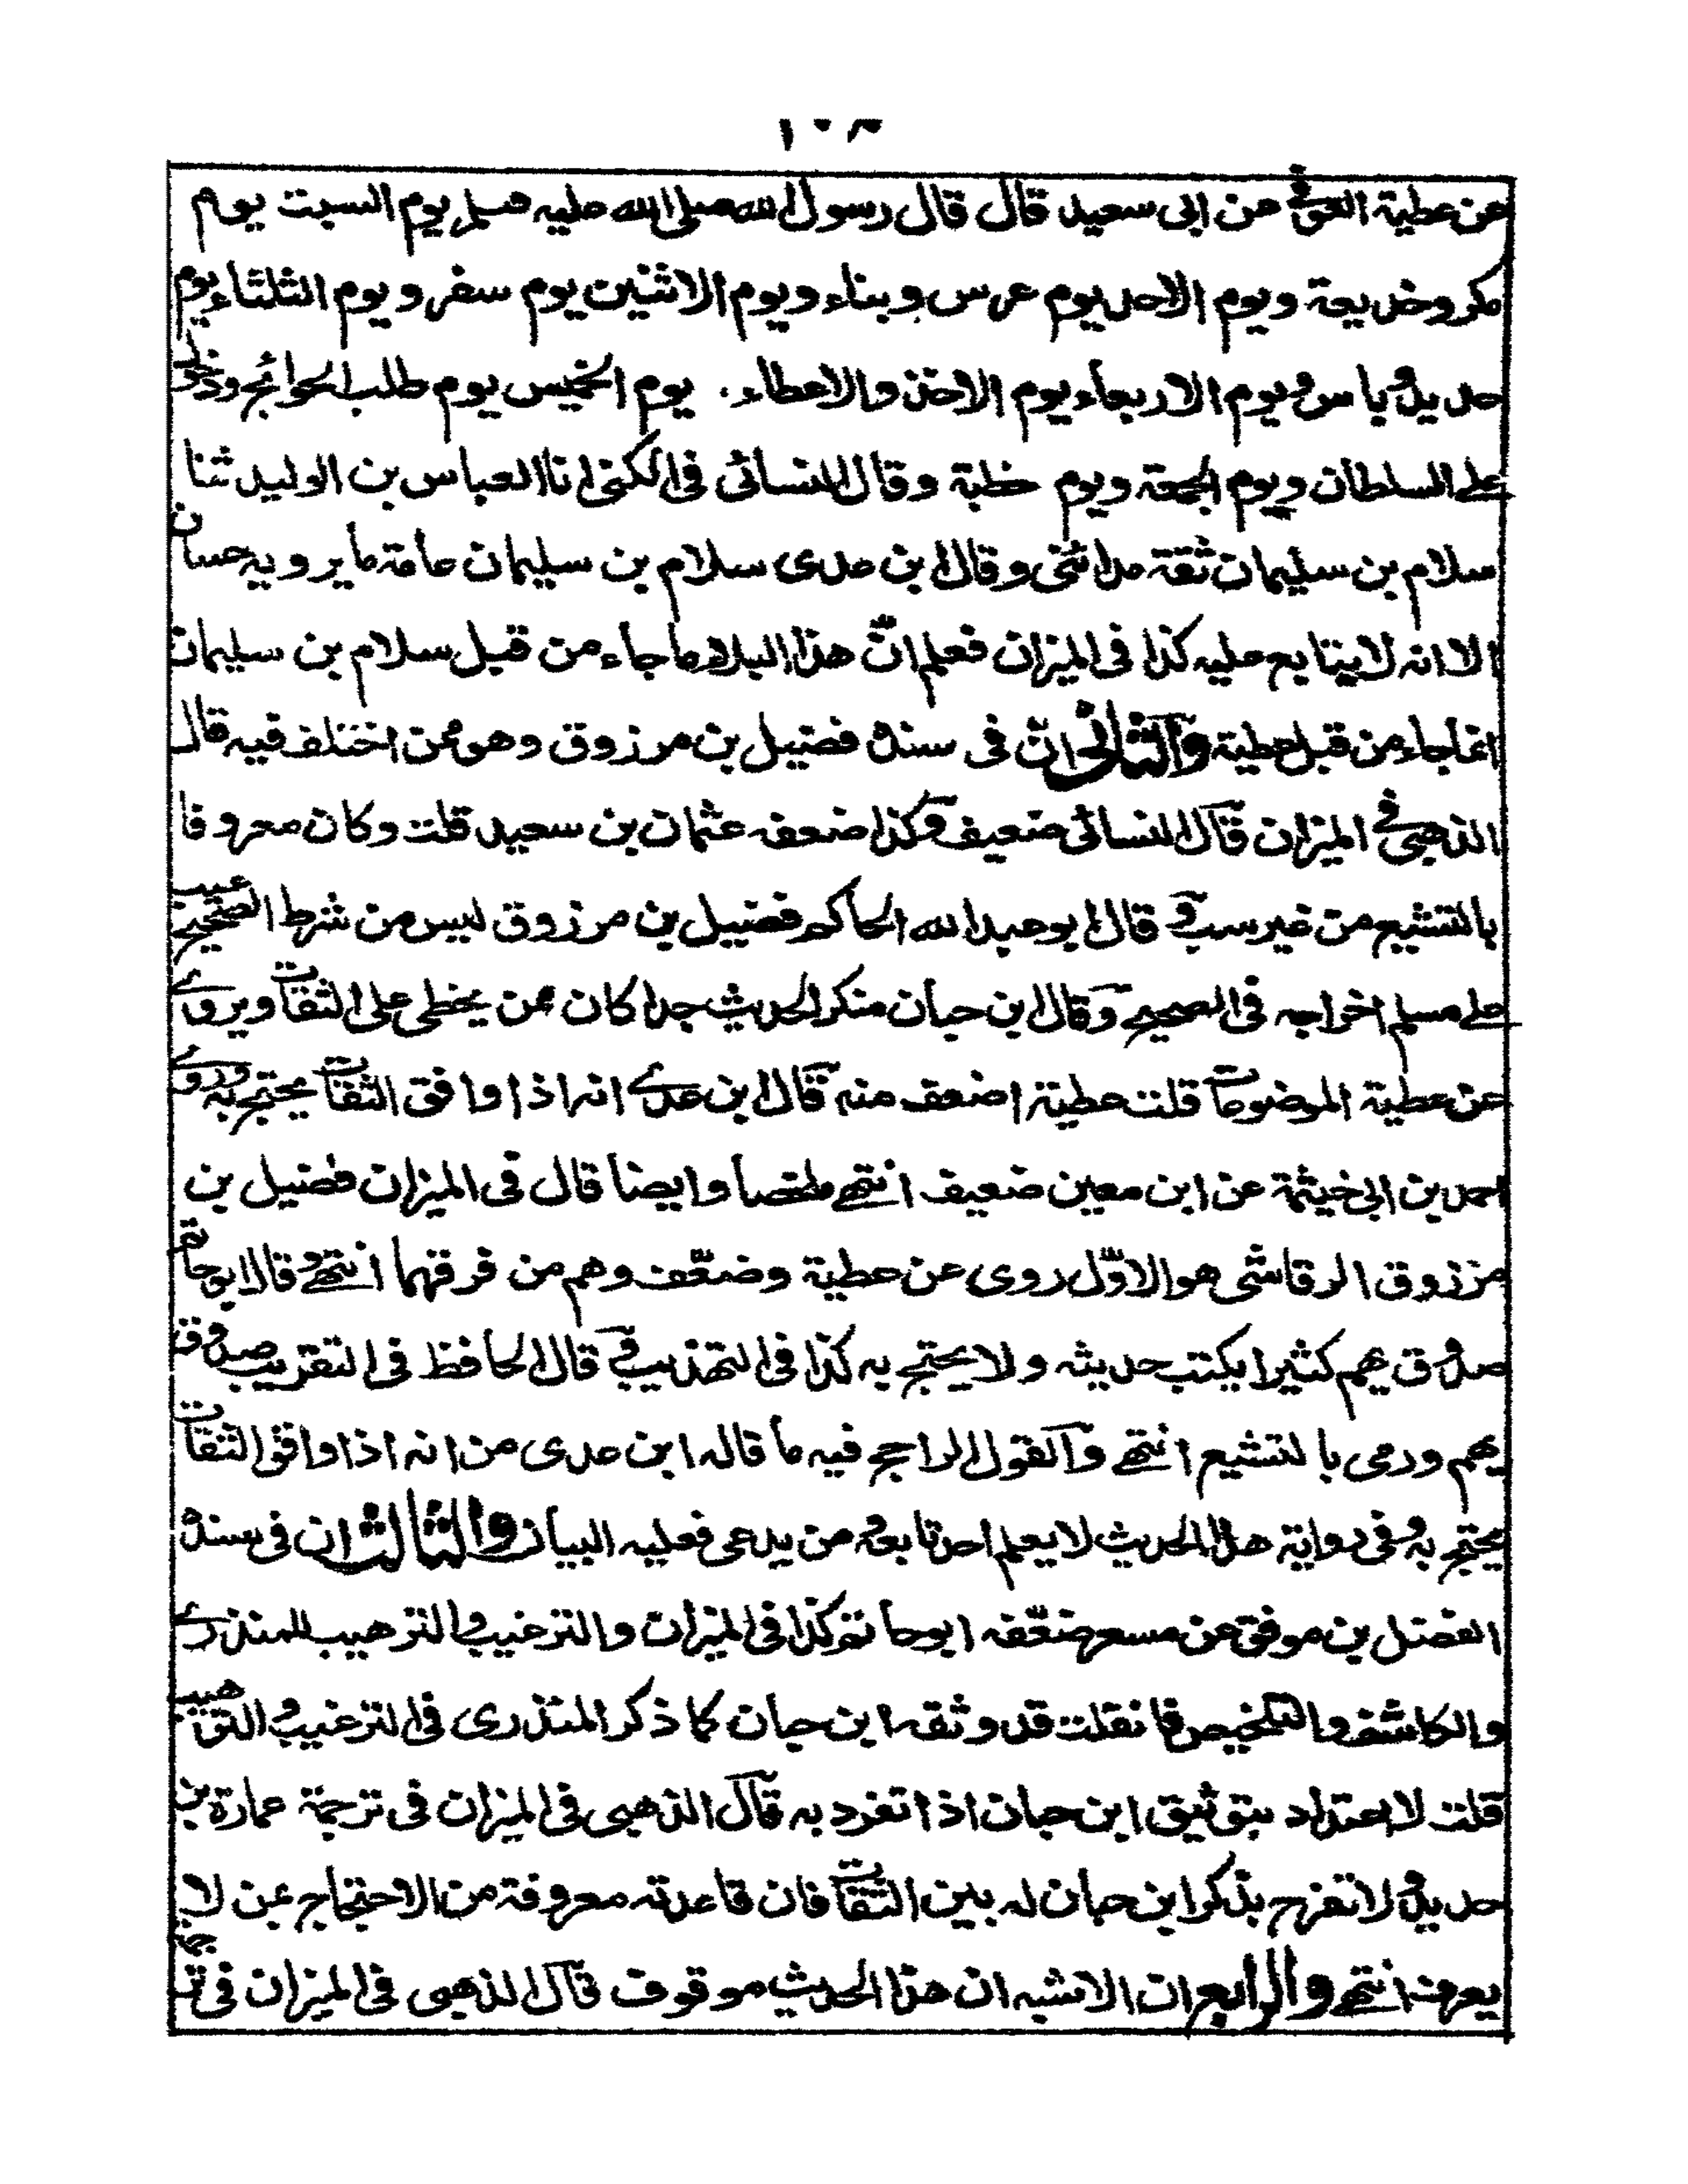 ١٠٨
عن عطية العوفي عن ابى سعيد قال قال رسول الله صلى الله عليه وسلم يوم السبت يوم
مكر وخديعة ويوم الاحد يوم عرس وبناء ويوم الاثنين يوم سفر ويوم الثلثاء يوم
حديد وباس ويوم الاربعاء يوم الاخذ والاعطاء. يوم الخميس يوم طلب الحوائج ودخول
على السلطان ويوم الجمعة ويوم خطبة وقال النسائى فى الكنى انا العباس بن الوليد ثنا
سلام بن سليمان ثقة مدائنى وقال ابن عدى سلام بن سليمان عامة ما يرويه حسان
الا انه لا يتابع عليه كذا فى الميزان فعلم انّ هذا البلاء ما جاء من قبل سلام بن سليمان
انما جاء من قبل عطية والثانى انّ فى سنده فضيل بن مرزوق وهو ممن اختلف فيه قال
الذهبى فى الميزان قال النسائى ضعيف وكذا ضعفه عثمان بن سعيد قلت وكان معروفا
بالتشيع من غير سب وقال ابو عبد الله الحاكم فضيل بن مرزوق ليس من شرط الصحيح عيب
على مسلم اخراجه فى الصحيح وقال ابن حبان منكر الحديث جدا كان ممن يخطى على الثقات ويروى
عن عطية الموضوعات قلت عطية اضعف منه قال ابن عدى انه اذا وافق الثقات يحتج به وروى
احمد بن ابى خيثمة عن ابن معين ضعيف انتهى ملخصا وايضا قال فى الميزان فضيل بن
مرزوق الرقاشى هو الاوّل روى عن عطية وضعّف وهم من فرقهما انتهى وقال ابو حاتم
صدوق يهم كثيرا يكتب حديثه ولا يحتج به كذا فى التهذيب وقال الحافظ فى التقريب صدوق
يهم ورمى بالتشيع انتهى والقول الراجح فيه ما قاله ابن عدى من انه اذا وافق الثقات
يحتج به وفى رواية هذا الحديث لا يعلم احد تابعه ومن يدعى فعليه البيان والثالث ان فى سنده
الفضل بن موفق عن مسعر ضعّفه ابو حاتم كذا فى الميزان والترغيب والترهيب للمنذرى
والكاشف والتلخيص فان قلت قد وثقه ابن حبان كما ذكر المنذرى فى الترغيب والترهيب
قلت لا اعتداد بتوثيق ابن حبان اذا تفرد به قال الذهبى فى الميزان فى ترجمة عمارة بن
حديد ولا تفرح بذكر ابن حبان له بين الثقات فان قاعدته معروفة من الاحتجاج عن لا
يعرف انتهى والرابع ان الاشبه ان هذا الحديث موقوف قال الذهبى فى الميزان فى ترجمة